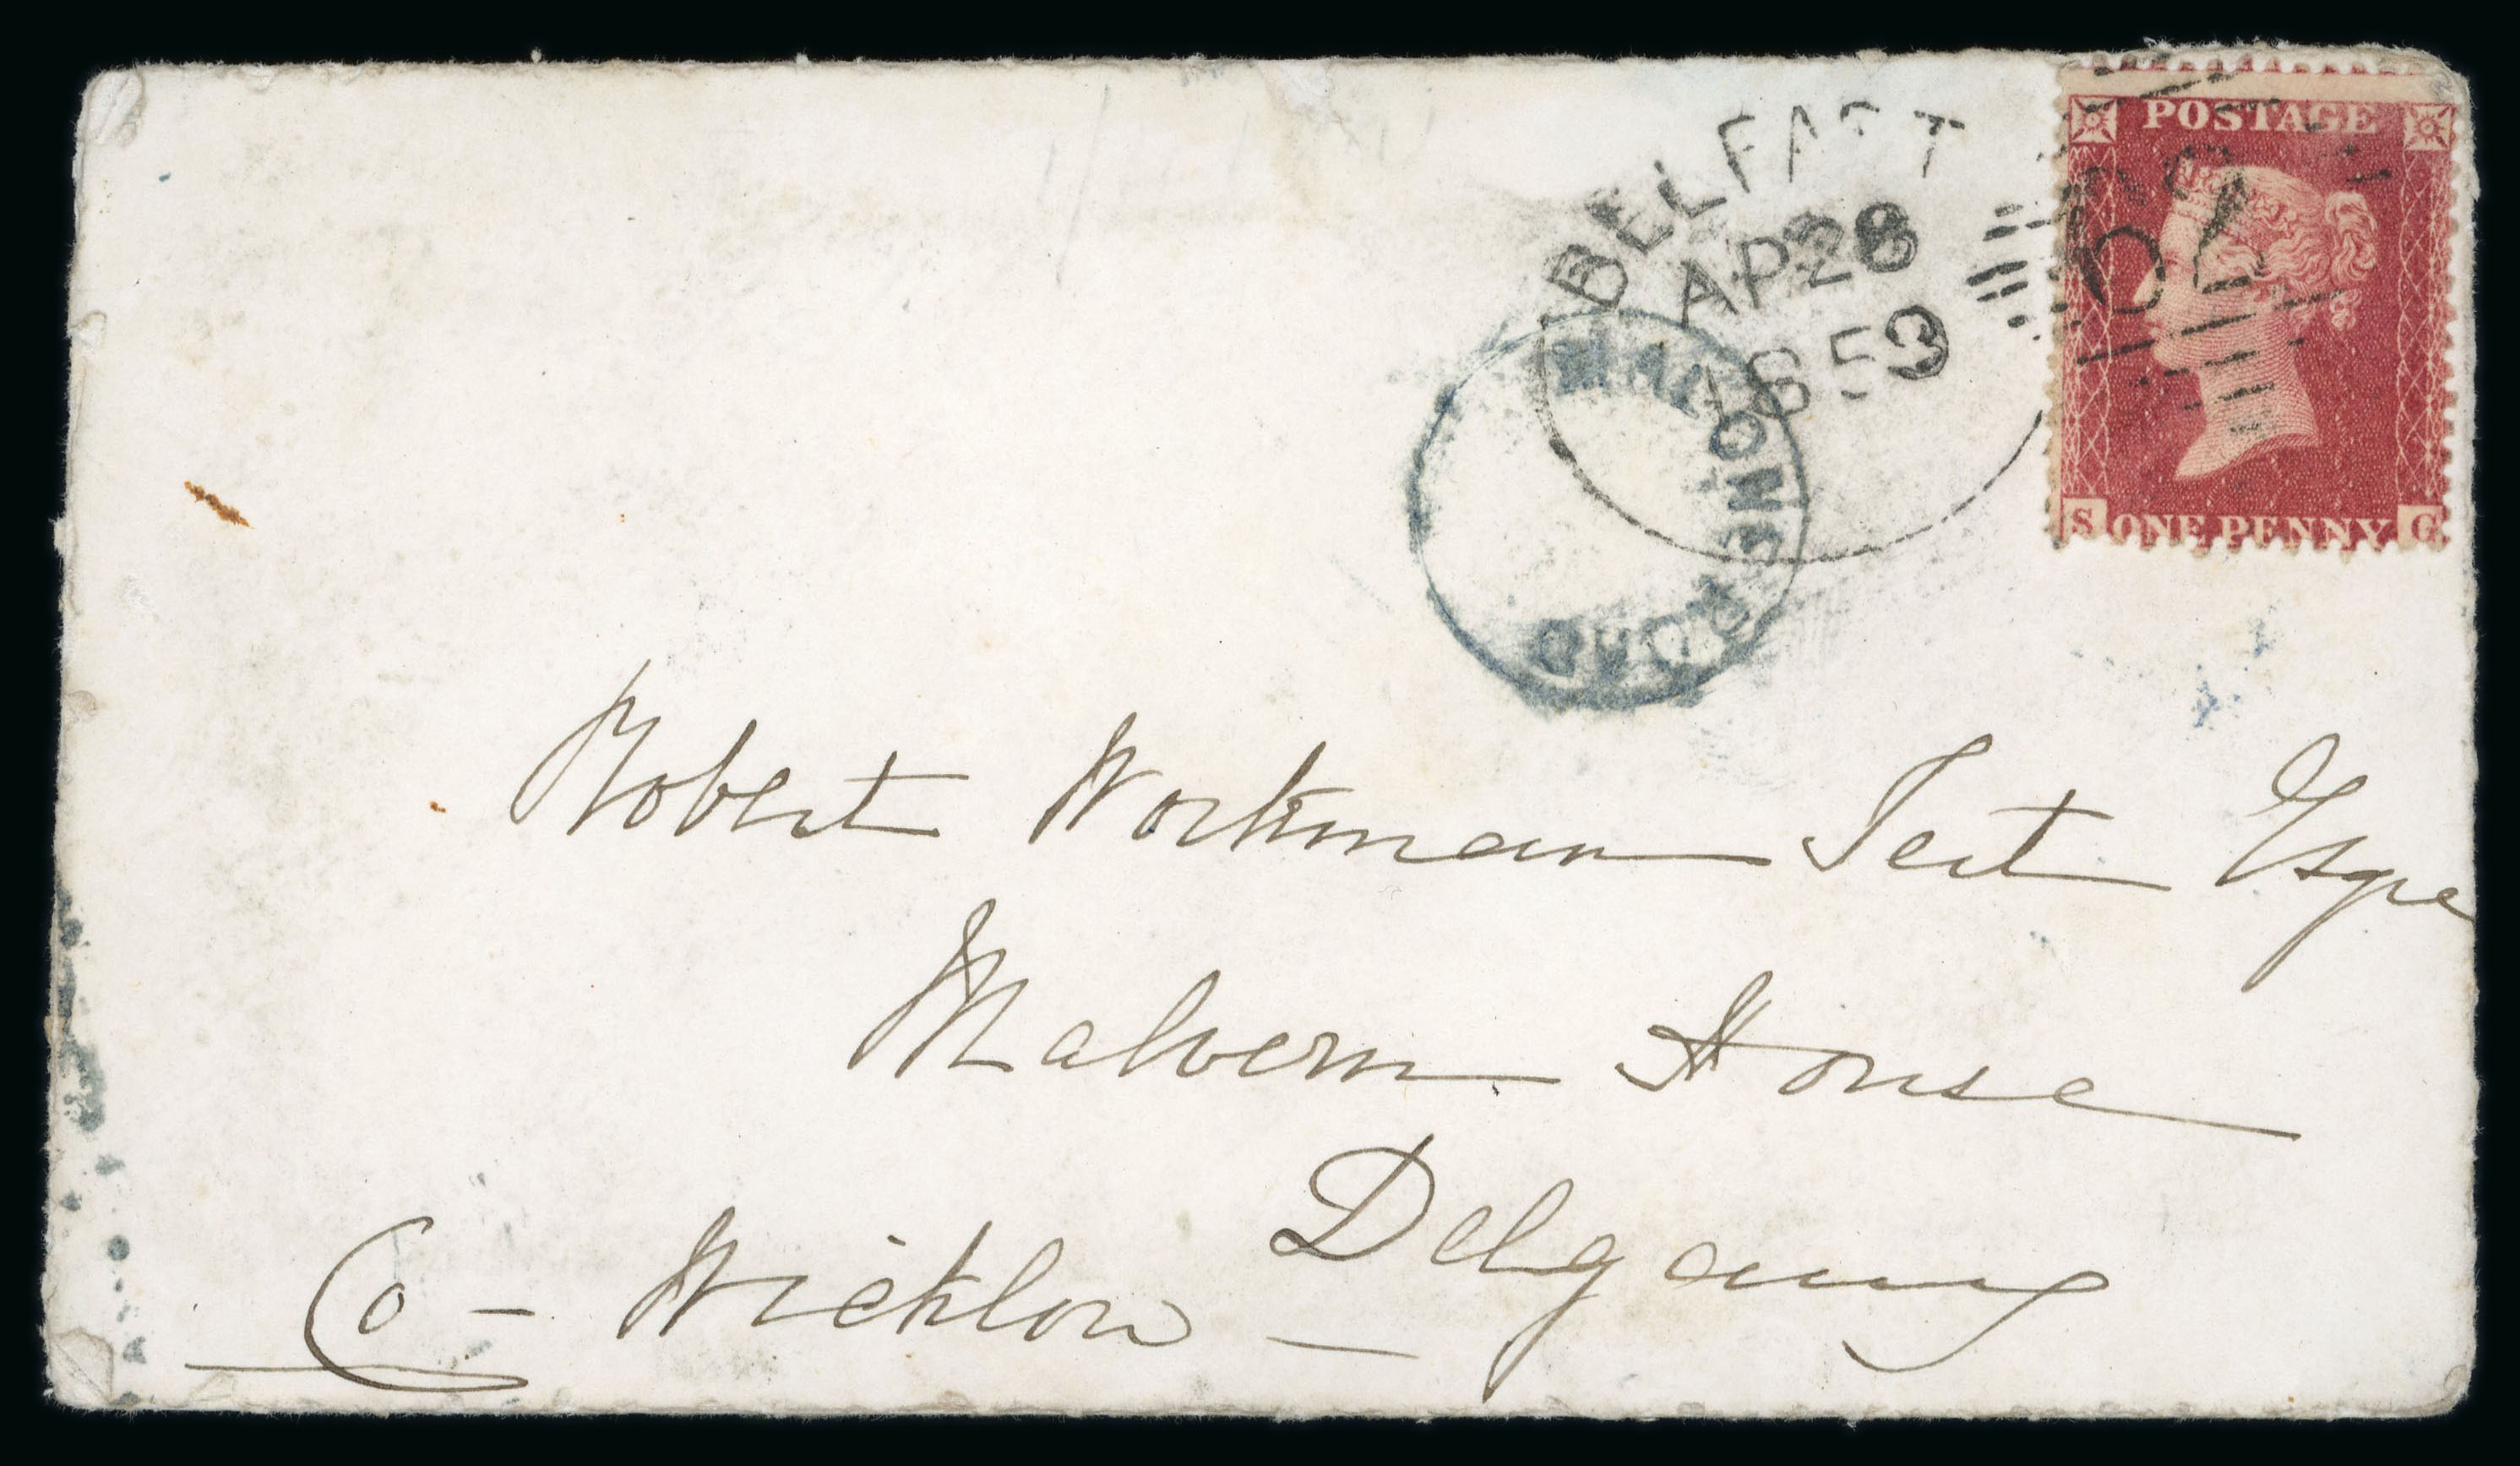 BELFAST
AP 28
1859
62
POSTAGE
S ONE PENNY G
MALONE ROAD
Robert Workman Tert Esqre
Malvern House
Delgany
Co - Wicklow